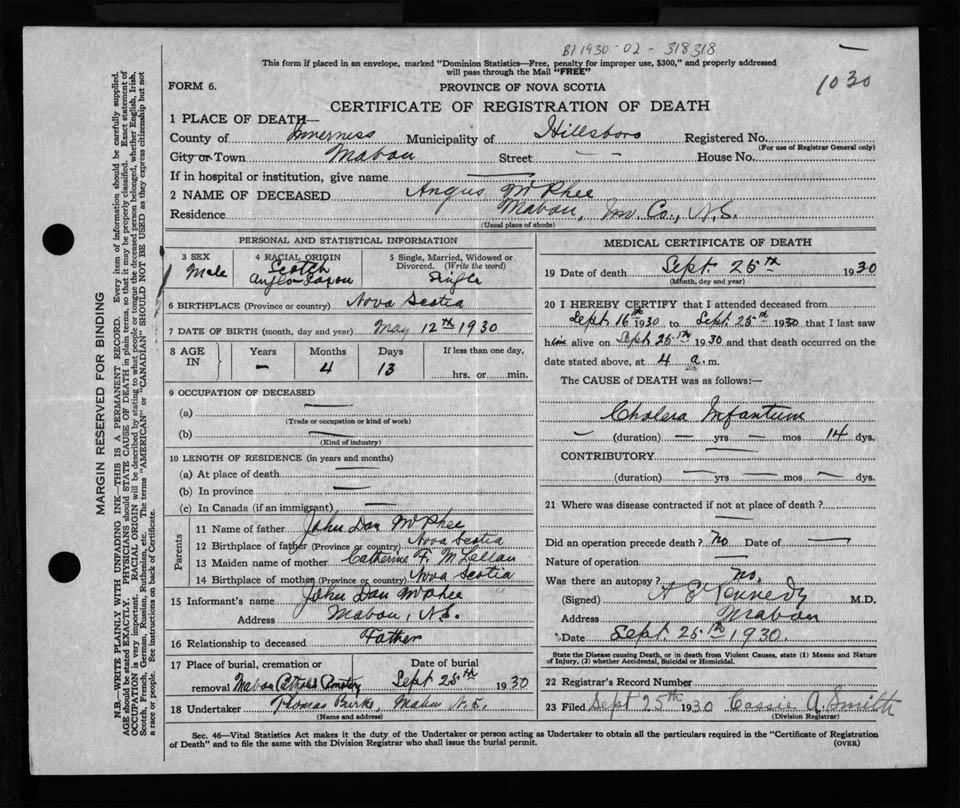 B1 1930-02-318318
1030
This form if placed in an envelope, marked "Dominion Statistics—Free, penalty for improper use, $300," and properly addressed
will pass through the Mail "FREE"
FORM 6.
PROVINCE OF NOVA SCOTIA
CERTIFICATE OF REGISTRATION OF DEATH
1 PLACE OF DEATH—
County of Inverness Municipality of Hillsboro Registered No.
(For use of Registrar General only)
City or Town Mabou Street — — House No.
If in hospital or institution, give name —
2 NAME OF DECEASED Angus McPhee
Residence Mabou, Inv. Co., N.S.
(Usual place of abode)
PERSONAL AND STATISTICAL INFORMATION
3 SEX
Male
4 RACIAL ORIGIN
Scotch
Anglo Saxon
5 Single, Married, Widowed or
Divorced. (Write the word)
Single
6 BIRTHPLACE (Province or country) Nova Scotia
7 DATE OF BIRTH (month, day and year) May 12th 1930
8 AGE IN
Years Months Days If less than one day,
— 4 13 hrs. or min.
9 OCCUPATION OF DECEASED
(a) —
(Trade or occupation or kind of work)
(b) —
(Kind of industry)
10 LENGTH OF RESIDENCE (in years and months)
(a) At place of death —
(b) In province —
(c) In Canada (if an immigrant) —
Parents
11 Name of father John Dan McPhee
12 Birthplace of father (Province or country) Nova Scotia
13 Maiden name of mother Catherine F. McLellan
14 Birthplace of mother (Province or country) Nova Scotia
15 Informant's name John Dan McPhee
Address Mabou, N.S.
16 Relationship to deceased Father
17 Place of burial, cremation or Date of burial
removal Mabou Cemetery Sept 25th 1930
18 Undertaker Thomas Burke, Mabou N.S.
(Name and address)
MEDICAL CERTIFICATE OF DEATH
19 Date of death Sept. 25th 1930
(Month, day and year)
20 I HEREBY CERTIFY that I attended deceased from
Sept. 16th 1930 to Sept. 25th 1930 that I last saw
him alive on Sept. 25th 1930 and that death occurred on the
date stated above, at 4 a.m.
The CAUSE of DEATH was as follows:—
Cholera Infantum
— (duration) — yrs — mos 14 dys.
CONTRIBUTORY —
(duration) — yrs — mos — dys.
21 Where was disease contracted if not at place of death? —
Did an operation precede death? no Date of —
Nature of operation —
Was there an autopsy? no.
(Signed) Kennedy M.D.
Address Mabou
Date Sept. 25th 1930.
State the Disease causing Death, or in death from Violent Causes, state (1) Means and
Nature of Injury, (2) whether Accidental, Suicidal or Homicidal.
22 Registrar's Record Number
23 Filed Sept 25th 1930 Cassie A. Smith
(Division Registrar)
Sec. 46—Vital Statistics Act makes it the duty of the Undertaker or person acting as Undertaker to obtain all the particulars required in the "Certificate of Registration
of Death" and to file the same with the Division Registrar who shall issue the burial permit. (OVER)
MARGIN RESERVED FOR BINDING
N.B.—WRITE PLAINLY WITH UNFADING INK—THIS IS A PERMANENT RECORD. Every item of information should be carefully supplied.
AGE should be stated EXACTLY. PHYSICIANS should STATE CAUSE OF DEATH in plain terms, so that it may be properly classified. Exact statement of
OCCUPATION is very important. RACIAL ORIGIN will be described by stating to what people or tongue the deceased person belonged, whether English, Irish,
Scotch, French, German, Russian, Ruthenian, etc. The terms "AMERICAN" or "CANADIAN" SHOULD NOT BE USED as they express citizenship but not
a race or people. See instructions on back of Certificate.